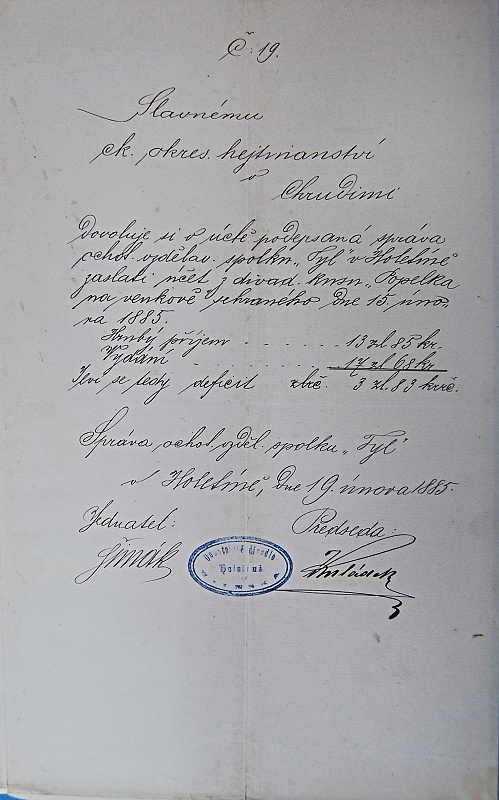 Č. 19.
Slavnému
ck. okres. hejtmanství
v
Chrudimi
Dovoluje si v úctě podepsaná správa
ochot. vzdělav. spolku „Tyl" v Holetíně
zaslati účet z divad. kusu „Popelka
na venkově" sehraného dne 15. úno-
ra 1885.
Hrubý příjem - - - - - - 13 zl. 85 kr.
Vydání - - - - - - 17 zl 68 kr.
Jeví se tedy deficit 3 zl. 83 kr.
Správa ochot. vzděl. spolku „Tyl"
v Holetíně, dne 19. února 1885.
Jednatel: Předseda:
Šimák
divadlo